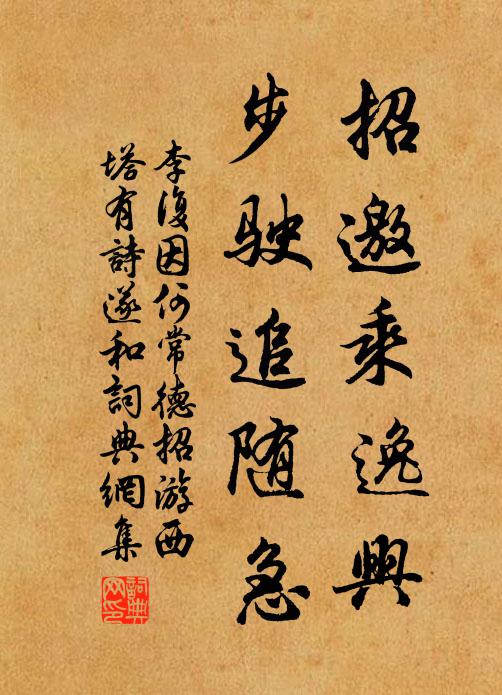 招邀乘逸興
步駛追随急
李復因何常德招游西
塔有詩遂和詞典網集
詞典
网印